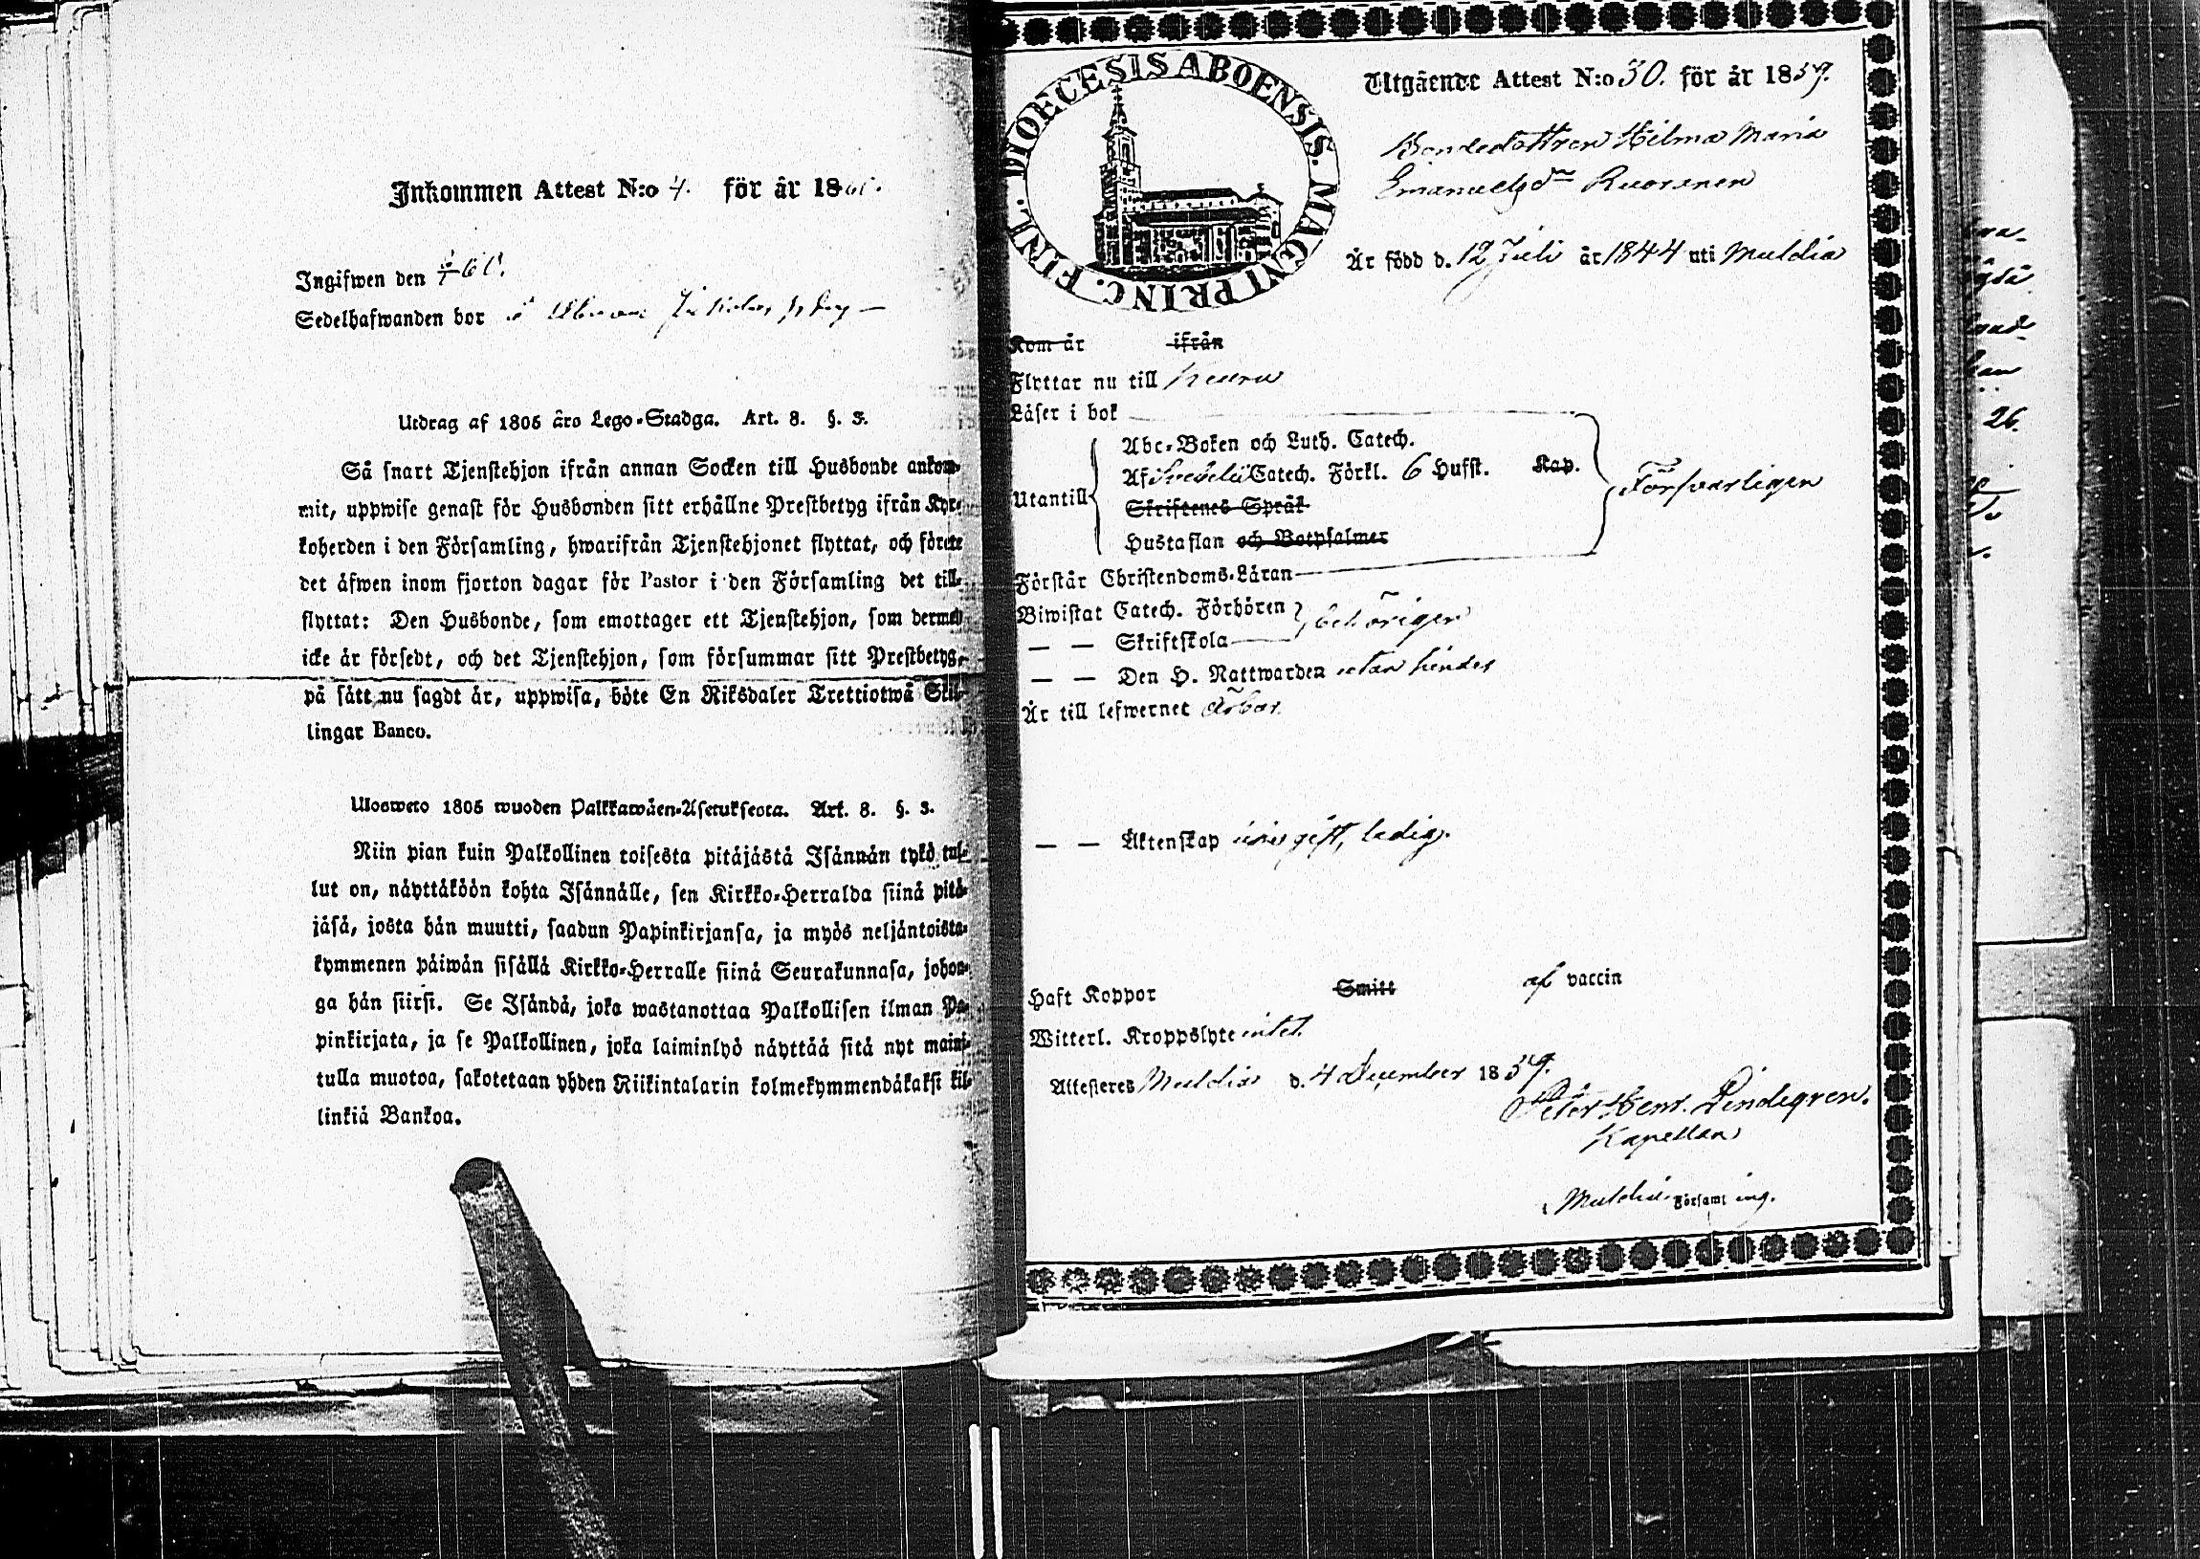 Inkommen Attest N:o 4. för år 1860.
Ingifwen den 60.
Sedelhafwanden bor
Utdrag af 1805 års Lego-Stadga. Art. 8. §. 3.
Så snart Tjenstehjon ifrån annan Socken till Husbonde ankom-
mit, uppwise genast för Husbonden sitt erhållne Prestbetyg ifrån Kyr-
koherden i den Församling, hwarifrån Tjenstehjonet flyttat, och förete
det äfwen inom fjorton dagar för Pastor i den Församling det till-
flyttat: Den Husbonde, som emottager ett Tjenstehjon, som dermed
icke är försedt, och det Tjenstehjon, som försummar sitt Prestbetyg,
på sätt nu sagdt är, uppwisa, böte En Riksdaler Trettiotwå Skil-
lingar Banco.
Ulosweto 1805 wuoden Palkkawäen-Asetuksesta. Art. 8. §. 3.
Niin pian kuin Palkollinen toisesta pitäjästä Isännän tykö tul-
lut on, näyttäköön kohta Isännälle, sen Kirkko-Herralda siinä pitä-
jäsä, josta hän muutti, saadun Papinkirjansa, ja myös neljäntoista-
kymmenen päiwän sisällä Kirkko-Herralle siinä Seurakunnasa, johon-
ga hän siirsi. Se Isändä, joka wastanottaa Palkollisen ilman Pa-
pinkirjata, ja se Palkollinen, joka laiminlyö näyttää sitä nyt maini-
tulla muotoa, sakotetaan yhden Riikintalarin kolmekymmendäkaksi kil-
linkiä Bankoa.
DIOECESIS ABOENSIS. MAGNI PRINC. FINL.
Utgående Attest N:o 30. för år 1859.
Bondedottren Hilma Maria
Emanuelsdr Ruoranen
Är född d. 12 Juli år 1844 uti Muldia
Kom år ifrån
Flyttar nu till Keuru
Läser i bok
Abc-Boken och Luth. Catech.
Af Svebelii Catech. Förkl. 6 Hufst. Kap.
Utantill
Skriftenes Språk
Hustaflan och Botpsalmer
Försvarligen
Förstår Christendoms-Läran
Biwistat Catech. Förhören
— — Skriftskola
behörigen
— — Den H. Nattwarden utan hinder
Är till lefwernet ärbar.
— — Äktenskap ogift, ledig.
Haft Koppor Smitt af vaccin
Witterl. Kroppslyte intet.
Attesteres Muldia d. 4 December 1859.
Peter Henr. Lindegren.
Kapellan
i Muldia Församling.
26.